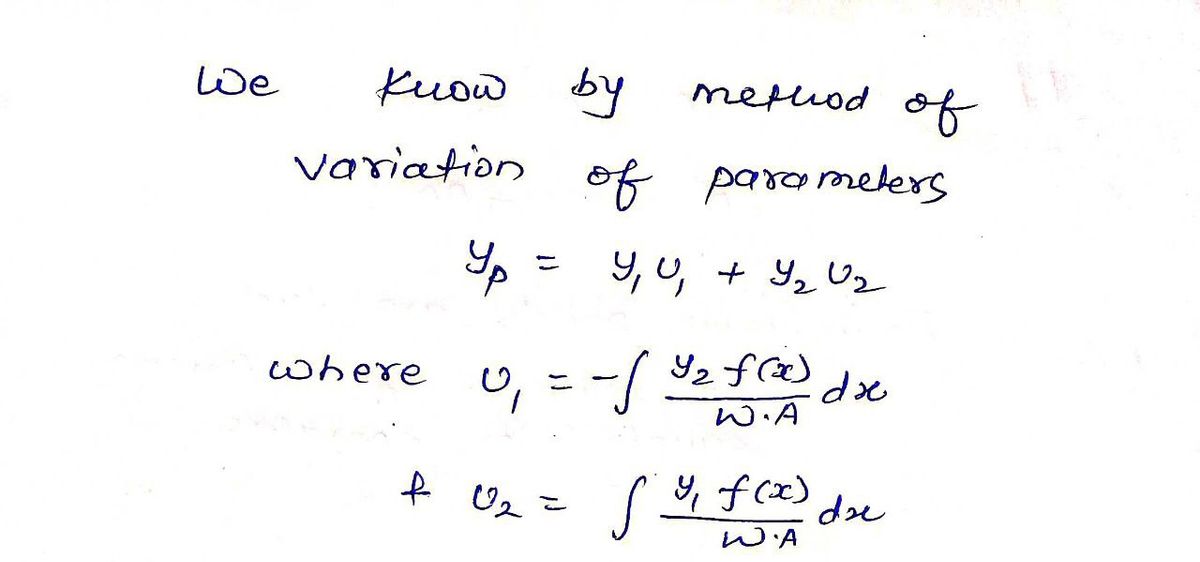 We know by method of
variation of parameters
y_p = y_1 υ_1 + y_2 υ_2
where υ_1 = -∫ y_2 f(x) / W·A dx
& υ_2 = ∫ y_1 f(x) / W·A dx